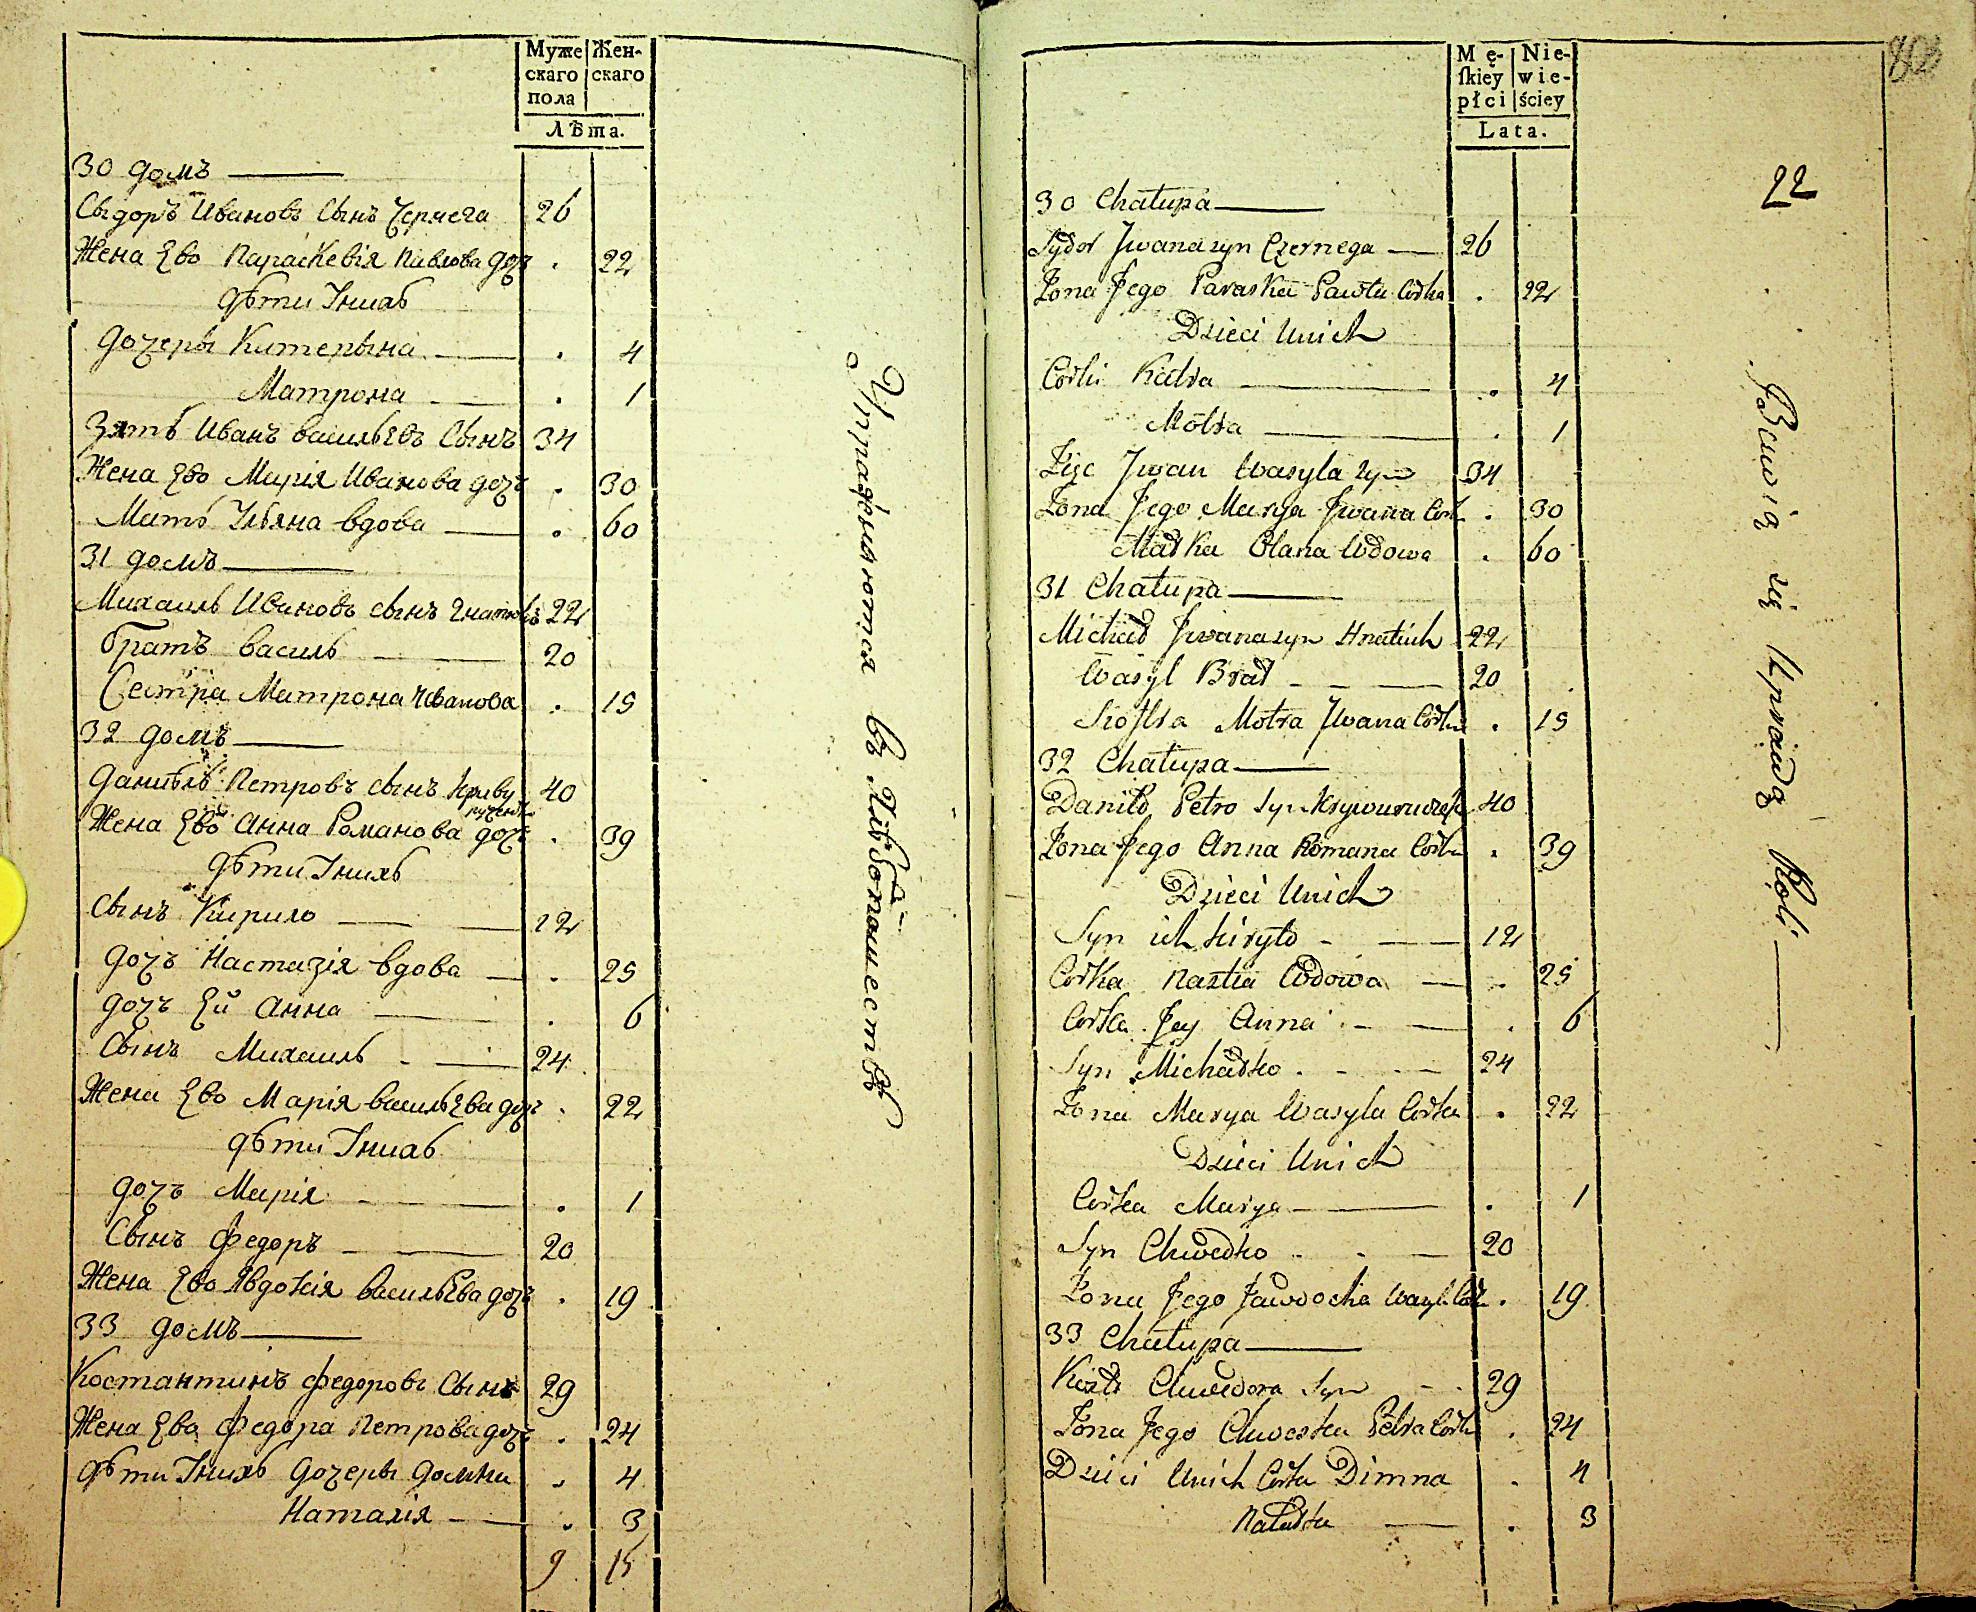 Муже Жен-
скаго скаго
пола
Лѣта.
30 домъ
Сыдоръ Ивановъ Сынъ Чернега 26
Жена Ево Параскевія Павлова дочь . 22
дѣти Унихъ
дочеры Катерына . 4
Матрона . 1
Зять Иванъ васильевъ Сынъ 34
Жена Ево Марія Иванова дочъ . 30
Мать Ульяна вдова . 60
31 домъ
Михаилъ Ивановъ сынъ Гнатюкъ 22
братъ василь 20
Сестра Матрона Иванова . 15
32 домъ
данило Петровъ сынъ Криву
ручекъ 40
Жена Ево Анна Романова дочь . 39
дѣти Унихъ
Сынъ Кирило 12
дочъ Настазія вдова . 25
дочъ Ей Анна . 6
Сынъ Михаилъ 24
Жена Ево Марія васильева дочъ . 22
дѣти Унихъ
дочъ Марія . 1
Сынъ Федоръ 20
Жена Ево Явдокія васильева дочъ . 19
33 домъ
Костантинъ Федоровъ Сынъ 29
Жена Ево Федора Петрова дочъ . 24
дѣти Унихъ дочеры домна . 4
Наталія . 3
9 15
Упражняются въ хлѣбопашествѣ
Mę- Nie-
skiey wie-
płci ściey
Lata.
22
30 Chałupa
Sydor Jwana syn Czernega 26
Żona Jego Paraska Pawła Corka . 22
Dzieci Unich
Corki Katra . 4
Motra . 1
Zięc Jwan Wasyla syn 34
Żona Jego Marya Jwana Cork . 30
Matka Olana Wdowa . 60
31 Chałupa
Michał Jwana syn Hnatiuk 22
Wasyl Brat 20
Siostra Motra Jwana Corka . 15
32 Chałupa
Daniło Petro Syn Krywuruczek 40
Żona Jego Anna Romana Corka . 39
Dzieci Unich
Syn ich kiryło 12
Corka Nastia Wdowa . 25
Corka Jey Anna . 6
Syn Michałko 24
Żona Marya Wasyla Corka . 22
Dzieci Unich
Corka Marya . 1
Syn Chwedko 20
Żona Jego Jawdocha Wasyl Cor . 19
33 Chałupa
Chwedora Syn 29
Żona Jego Chweska Petra Corka . 24
Dzieci Unich Corka Dimna . 4
Natałka . 3
Bawią się Uprawą Roli